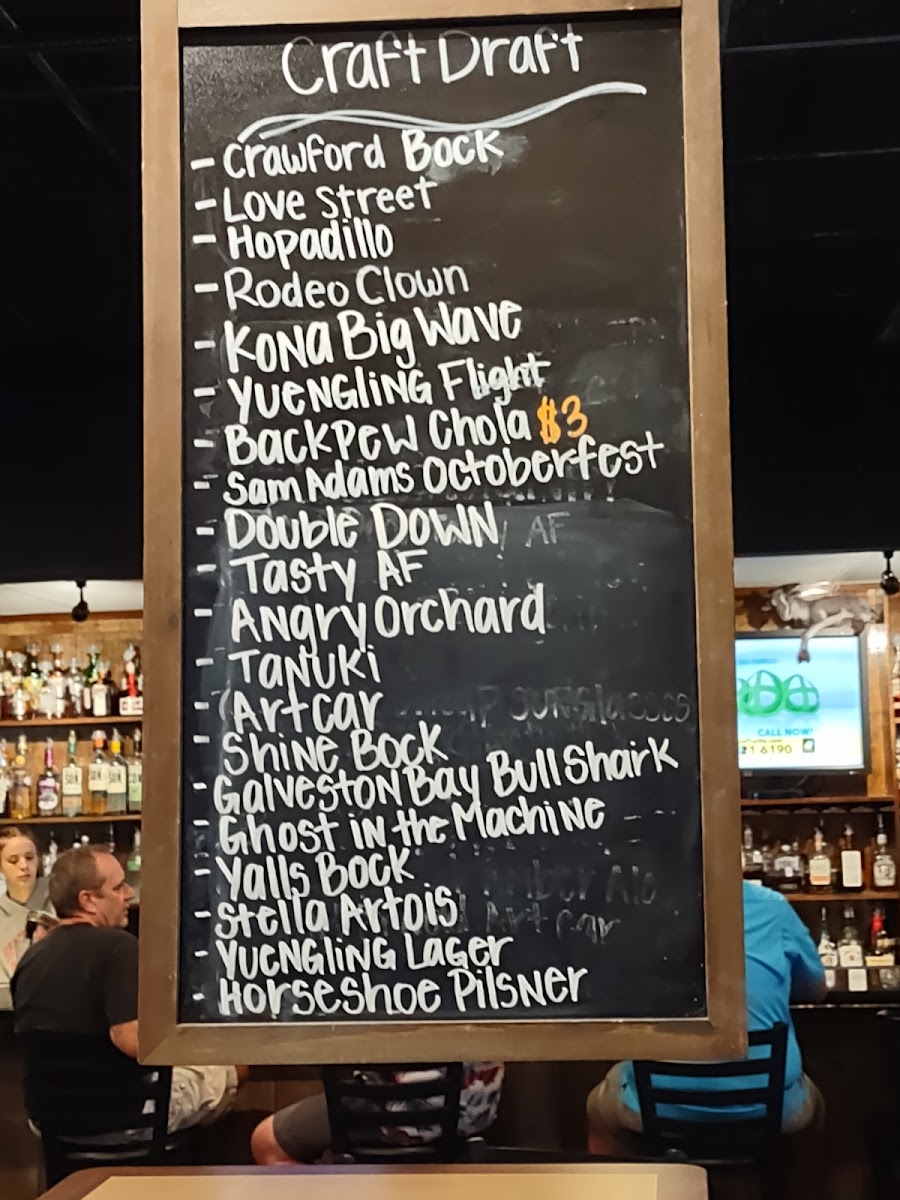 Craft Draft
- Crawford Bock
- Love Street
- Hopadillo
- Rodeo Clown
- Kona Big Wave
- Yuengling Flight
- Backpew Chola $3
- Sam Adams Octoberfest
- Double Down
AF
- Tasty AF
- Angry Orchard
- Tanuki
- Artcar
sunglasses
- Shine Bock
- Galveston Bay Bull Shark
- Ghost in the Machine
- Yalls Bock
- Stella Artois
- Yuengling Lager
- Horseshoe Pilsner
CALL NOW!